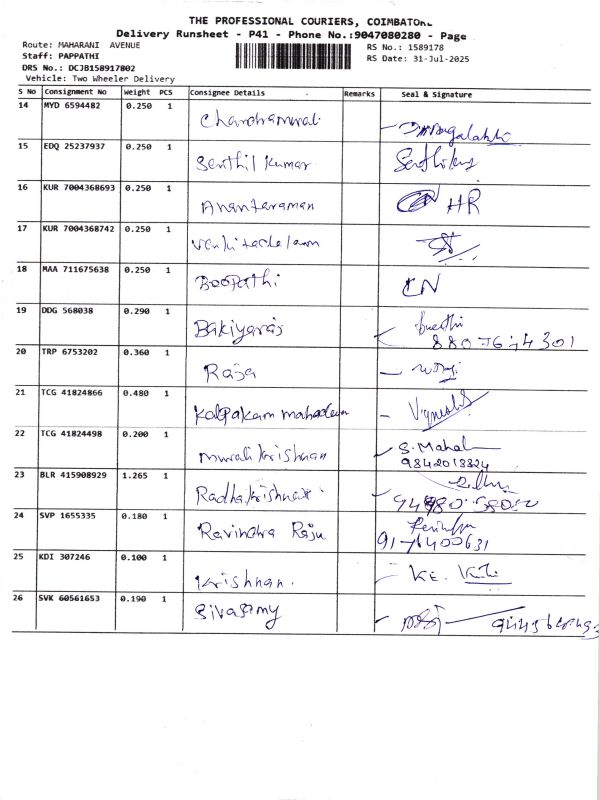 THE PROFESSIONAL COURIERS, COIMBATORE
Delivery Runsheet - P41 - Phone No.:9047080280 - Page
Route: MAHARANI AVENUE
RS No.: 1589178
Staff: PAPPATHI
RS Date: 31-Jul-2025
DRS No.: DCJB1589178O2
Vehicle: Two Wheeler Delivery
S No Consignment No Weight PCS Consignee Details Remarks Seal & Signature
14 MYD 6594482 0.250 1
15 EDQ 25237937 0.250 1 Senthil Kumar
16 KUR 7004368693 0.250 1 Anantaraman HR
17 KUR 7004368742 0.250 1 Venkitachelam
18 MAA 711675638 0.250 1 Boopathi CN
19 DDG 568038 0.290 1 Bakiyaraj
20 TRP 6753202 0.360 1 Raja
21 TCG 41824866 0.480 1 Kalpakam mahadevan
22 TCG 41824498 0.200 1 murali krishnan S. Mahal
9842013324
23 BLR 415908929 1.265 1 Radhakrishnan
24 SVP 1655335 0.180 1 Ravindra Raju
25 KDI 307246 0.100 1 Krishnan.
26 SVK 60561653 0.190 1 Sivasamy